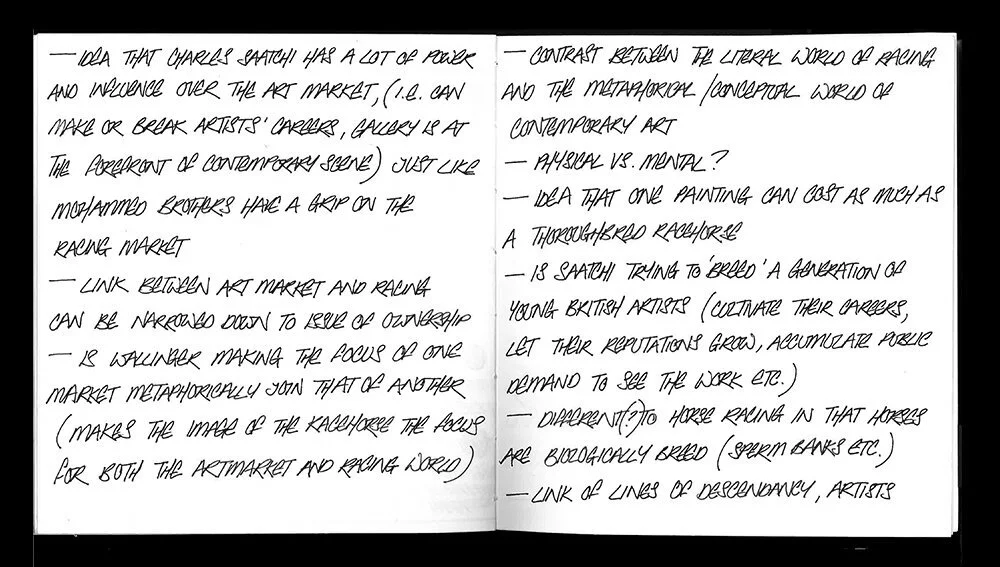 — IDEA THAT CHARLES SAATCHI HAS A LOT OF POWER
AND INFLUENCE OVER THE ART MARKET, (I.E. CAN
MAKE OR BREAK ARTISTS' CAREERS, GALLERY IS AT
THE FOREFRONT OF CONTEMPORARY SCENE) JUST LIKE
MOHAMMED BROTHERS HAVE A GRIP ON THE
RACING MARKET
— LINK BETWEEN ART MARKET AND RACING
CAN BE NARROWED DOWN TO ISSUE OF OWNERSHIP
— IS WALLINGER MAKING THE FOCUS OF ONE
MARKET METAPHORICALLY JOIN THAT OF ANOTHER
(MAKES THE IMAGE OF THE RACEHORSE THE FOCUS
FOR BOTH THE ARTMARKET AND RACING WORLD)
— CONTRAST BETWEEN THE LITERAL WORLD OF RACING
AND THE METAPHORICAL/CONCEPTUAL WORLD OF
CONTEMPORARY ART
— PHYSICAL VS. MENTAL?
— IDEA THAT ONE PAINTING CAN COST AS MUCH AS
A THOROUGHBRED RACEHORSE
— IS SAATCHI TRYING TO 'BREED' A GENERATION OF
YOUNG BRITISH ARTISTS (CULTIVATE THEIR CAREERS,
LET THEIR REPUTATIONS GROW, ACCUMULATE PUBLIC
DEMAND TO SEE THE WORK ETC.)
— DIFFERENT(?) TO HORSE RACING IN THAT HORSES
ARE BIOLOGICALLY BREED (SPERM BANKS ETC.)
— LINK OF LINES OF DESCENDANCY, ARTISTS